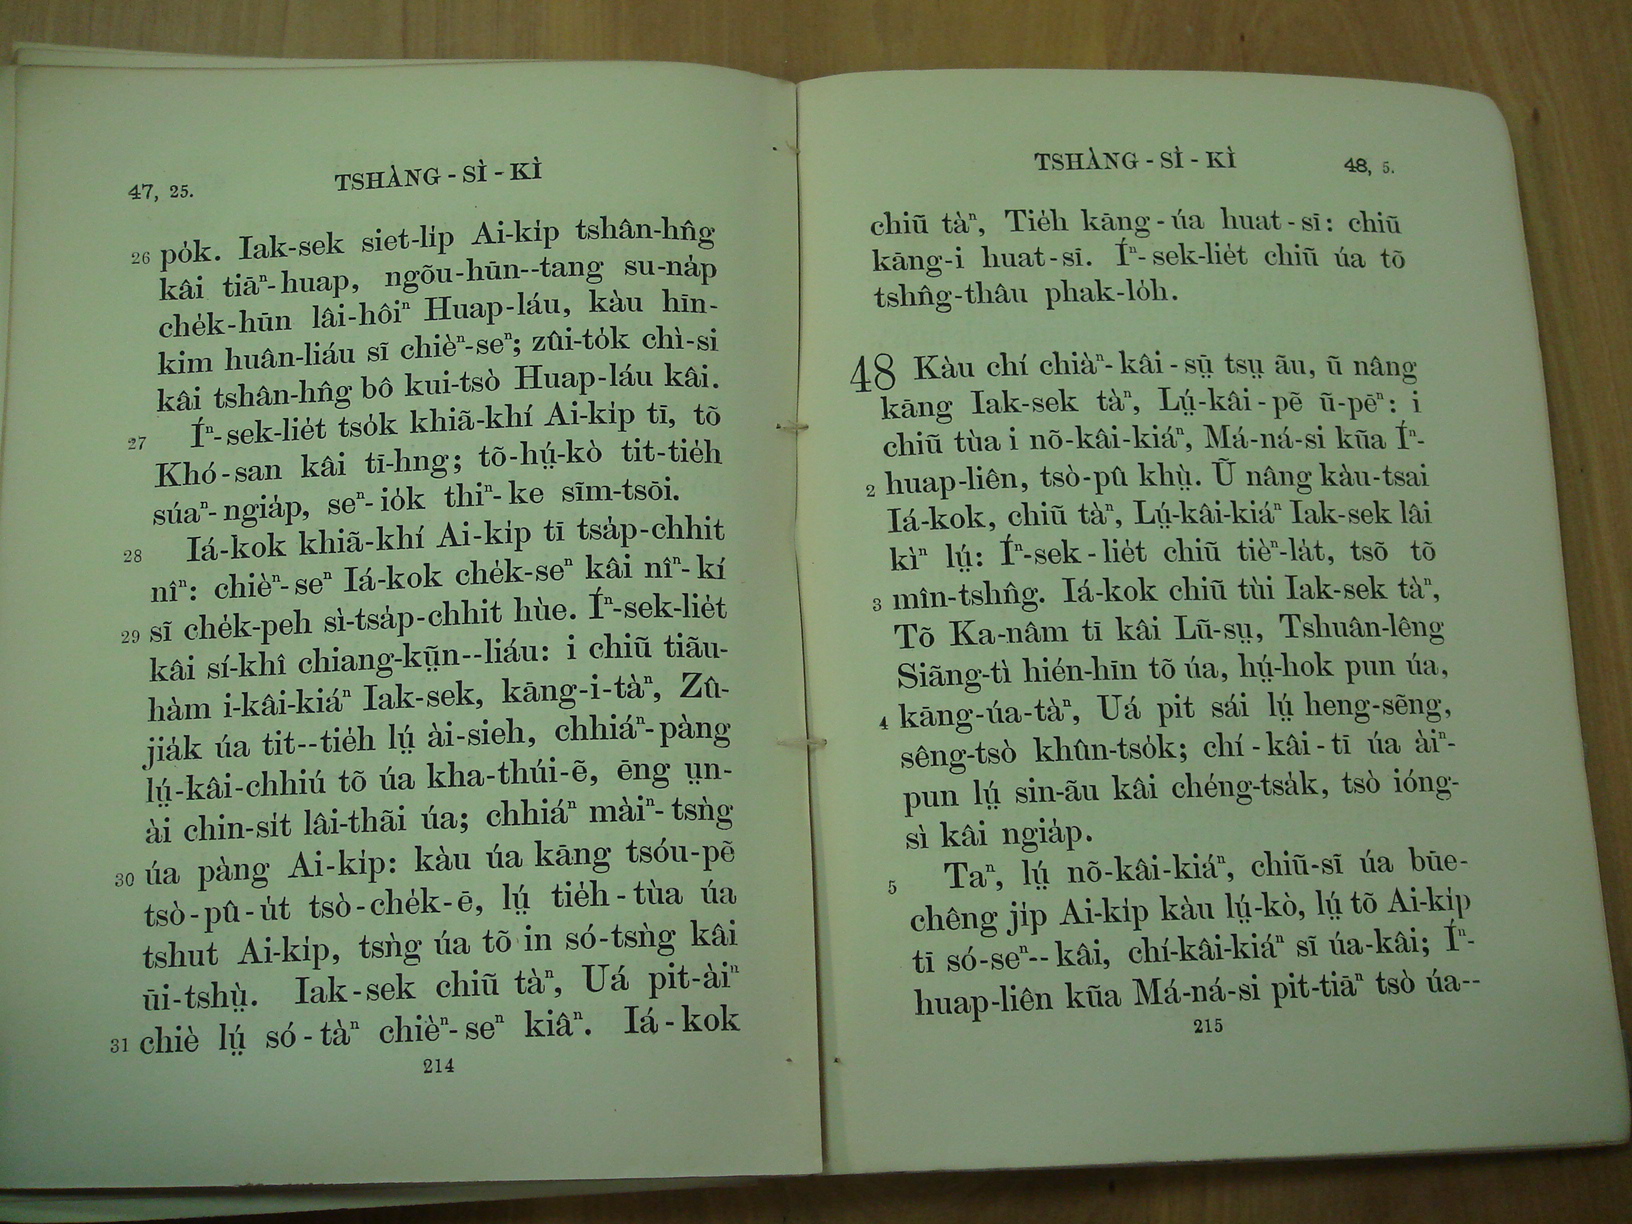 47, 25.
TSHÀNG-SÌ-KÌ
26 po̍k. Iak-sek siet-li̍p Ai-ki̍p tshân-hn̂g
kâi tiāⁿ-huap, ngõu-hūn--tang su-na̍p
che̍k-hūn lâi-hôiⁿ Huap-láu, kàu hīn-
kim huân-liáu sĩ chièⁿ-seⁿ; zûi-to̍k chì-si
kâi tshân-hn̂g bô kui-tsò Huap-láu kâi.
27 Íⁿ-sek-lie̍t tso̍k khiã-khí Ai-ki̍p tī, tõ
Khó-san kâi tī-hng; tõ-hṳ́-kò tit-tie̍h
súaⁿ-ngia̍p, seⁿ-io̍k thiⁿ-ke sĩm-tsōi.
28 Iá-kok khiã-khí Ai-ki̍p tī tsa̍p-chhit
nîⁿ: chièⁿ-seⁿ Iá-kok che̍k-seⁿ kâi nîⁿ-kí
29 sĩ che̍k-peh sì-tsa̍p-chhit hùe. Íⁿ-sek-lie̍t
kâi sí-khî chiang-kṳ̃n--liáu: i chiũ tiãu-
hàm i-kâi-kiáⁿ Iak-sek, kāng-i-tàⁿ, Zû-
jia̍k úa tit--tie̍h lṳ́ ài-sieh, chhiáⁿ-pàng
lṳ́-kâi-chhiú tõ úa kha-thúi-ẽ, ēng ṳn-
ài chin-si̍t lâi-thãi úa; chhiáⁿ màiⁿ-tsǹg
30 úa pàng Ai-ki̍p: kàu úa kāng tsóu-pẽ
tsò-pû-u̍t tsò-che̍k-ē, lṳ́ tie̍h-tùa úa
tshut Ai-ki̍p, tsǹg úa tõ in só-tsǹg kâi
ūi-tshṳ̀. Iak-sek chiũ tàⁿ, Uá pit-àiⁿ
31 chiè lṳ́ só-tàⁿ chièⁿ-seⁿ kiâⁿ. Iá-kok
214
TSHÀNG-SÌ-KÌ
48, 5.
chiũ tàⁿ, Tie̍h kāng-úa huat-sī: chiũ
kāng-i huat-sī. Íⁿ-sek-lie̍t chiũ úa tõ
tshn̂g-thâu phak-lo̍h.
48 Kàu chí chiàⁿ-kâi-sṳ̄ tsṳ āu, ũ nâng
kāng Iak-sek tàⁿ, Lṳ́-kâi-pẽ ũ-pēⁿ: i
chiũ tùa i nõ-kâi-kiáⁿ, Má-ná-si kũa Íⁿ-
2 huap-liên, tsò-pû khṳ̀. Ũ nâng kàu-tsai
Iá-kok, chiũ tàⁿ, Lṳ́-kâi-kiáⁿ Iak-sek lâi
kìⁿ lṳ́: Íⁿ-sek-lie̍t chiũ tièⁿ-la̍t, tsõ tõ
3 mîn-tshn̂g. Iá-kok chiũ tùi Iak-sek tàⁿ,
Tõ Ka-nâm tī kâi Lũ-sṳ, Tshuân-lêng
Siãng-tì hién-hīn tõ úa, hṳ́-hok pun úa,
4 kāng-úa-tàⁿ, Uá pit sái lṳ́ heng-sẽng,
sêng-tsò khûn-tso̍k; chí-kâi-tī úa àiⁿ-
pun lṳ́ sin-ãu kâi chéng-tsa̍k, tsò ióng-
sì kâi ngia̍p.
5 Taⁿ, lṳ́ nõ-kâi-kiáⁿ, chiũ-sĩ úa būe-
chêng ji̍p Ai-ki̍p kàu lṳ́-kò, lṳ́ tõ Ai-ki̍p
tī só-seⁿ--kâi, chí-kâi-kiáⁿ sĩ úa-kâi; Íⁿ-
huap-liên kũa Má-ná-si pit-tiāⁿ tsò úa--
215